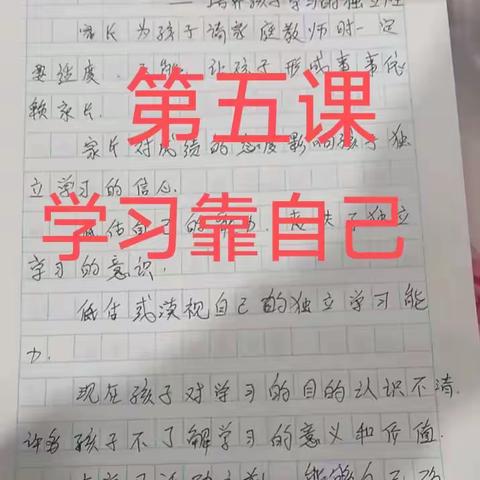 ——培养孩子学习的独立性
家长为孩子请家庭教师时一定
要适度,不能让孩子形成事事依
赖家长.
第五课
家长对成绩的态度影响孩子独
立学习的信心.
学习靠自己
低估自己的能力,丧失了独立
学习的意识.
低估或漠视自己的独立学习能
力.
现在孩子对学习的目的认识不清.
许多孩子不了解学习的意义和价值.